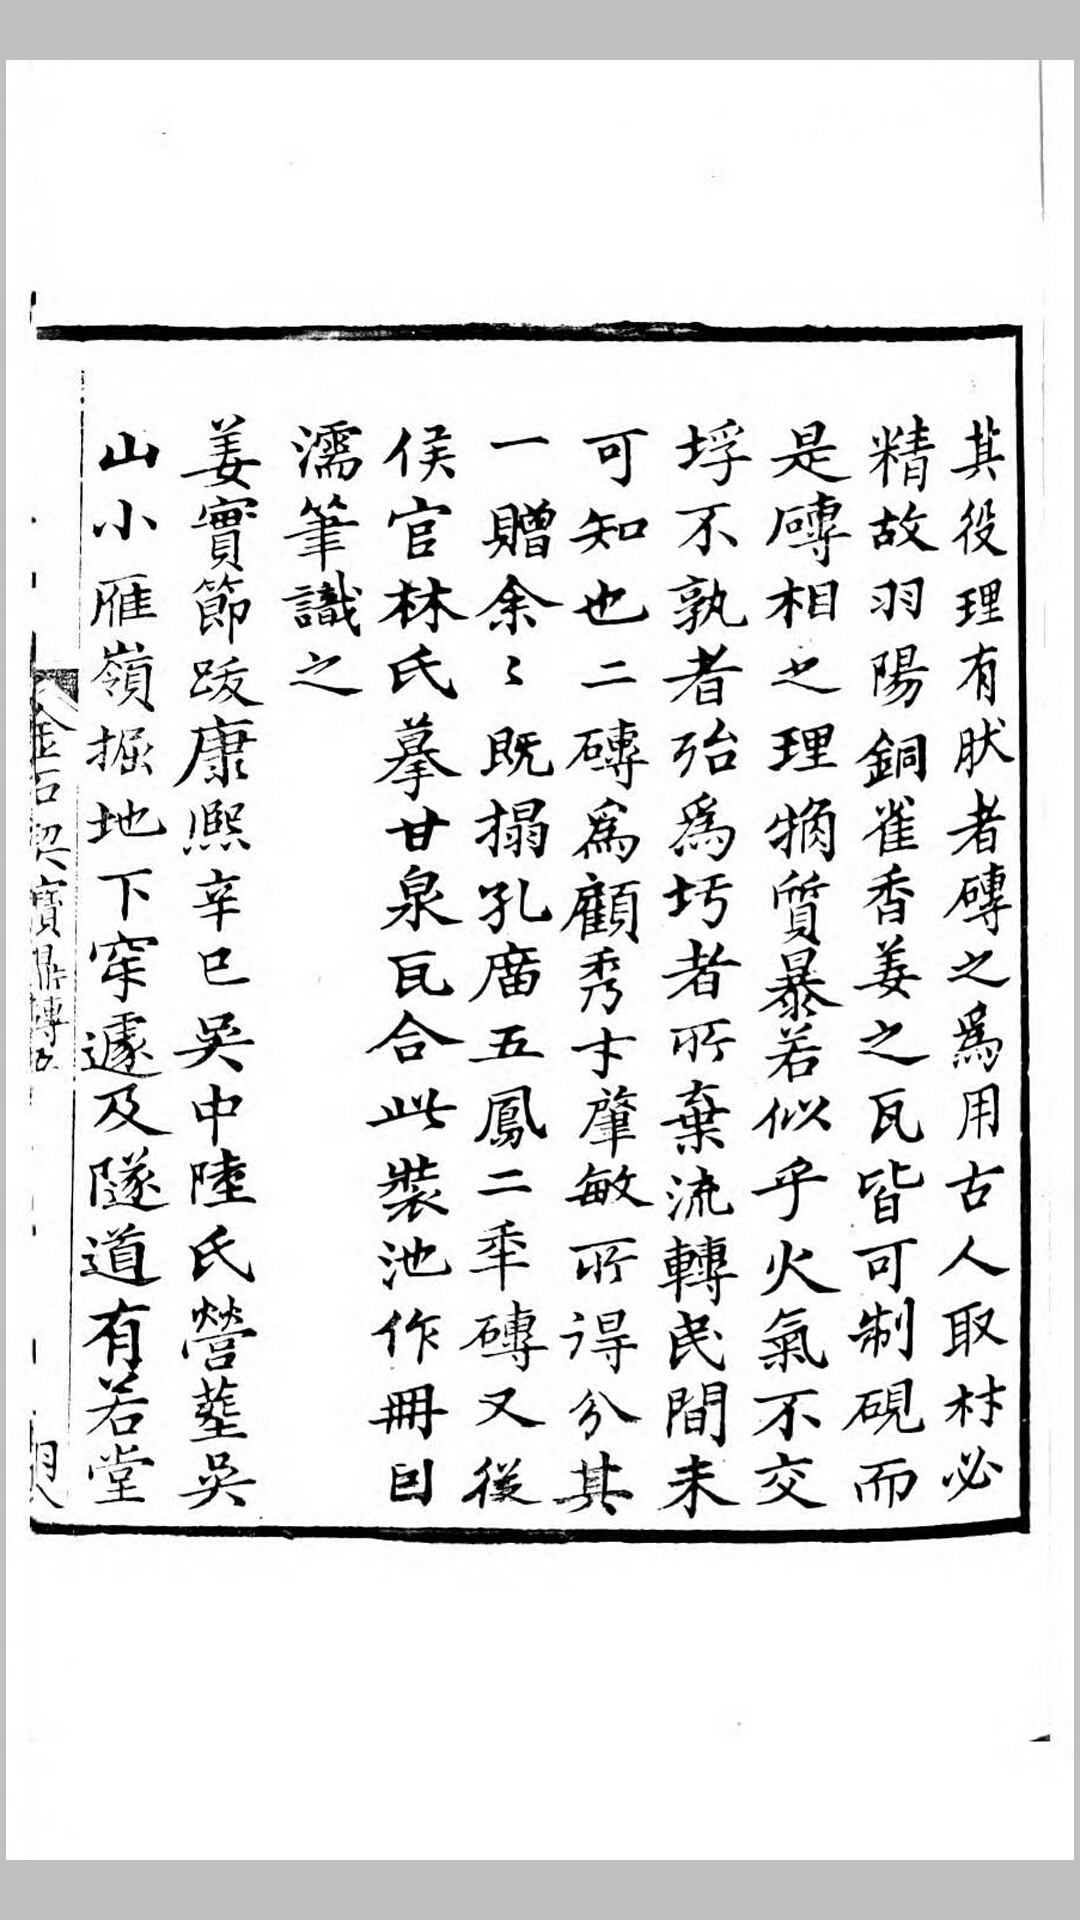 其役理有肰者磚之為用古人取材必
精故羽陽銅雀香姜之瓦皆可制硯而
是磚相之理觕質暴若似乎火氣不交
垺不孰者殆爲圬者所棄流轉民間未
可知也二磚爲顧秀才肈敏所得分其
一贈余〻既搨孔廣五鳳二秊磚又從
侯官林氏摹甘泉瓦合此裝池作冊因
濡筆識之
姜實節跋康熙辛巳吳中陸氏營塟吳
山小雁嶺掘地下穿遽及隧道有若堂
金石契寶鼎磚